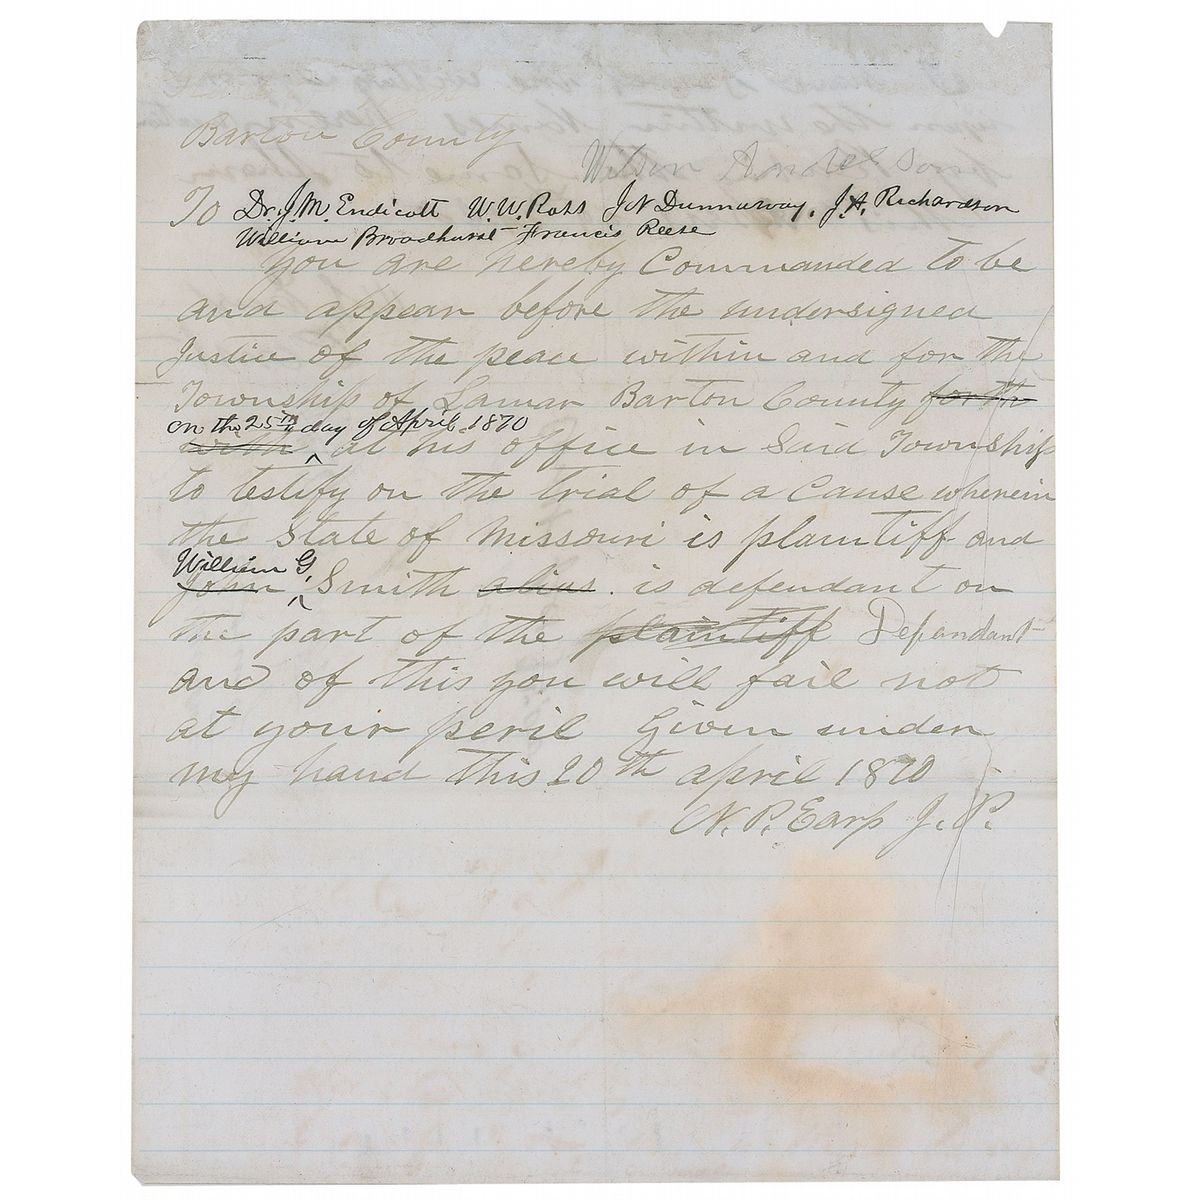 Barton County
Wilson Anderson
To Dr. J M. Endicott W. W. Ross J N Dunnaway, J. A. Richardson
William Broadhurst Francis Reese
You are hereby Commanded to be
and appear before the undersigned
Justice of the peace within and for the
Township of Lamar Barton County forth
on the 25th day of April 1870
with ^ at his office in Said Township
to testify on the trial of a Cause wherein
the State of Missouri is plaintiff and
William G
John ^ Smith alias . is defendant on
the part of the plaintiff Defandant
and of this you will fail not
at your peril Given under
my hand this 20th april 1870
N. P. Earp J. P.